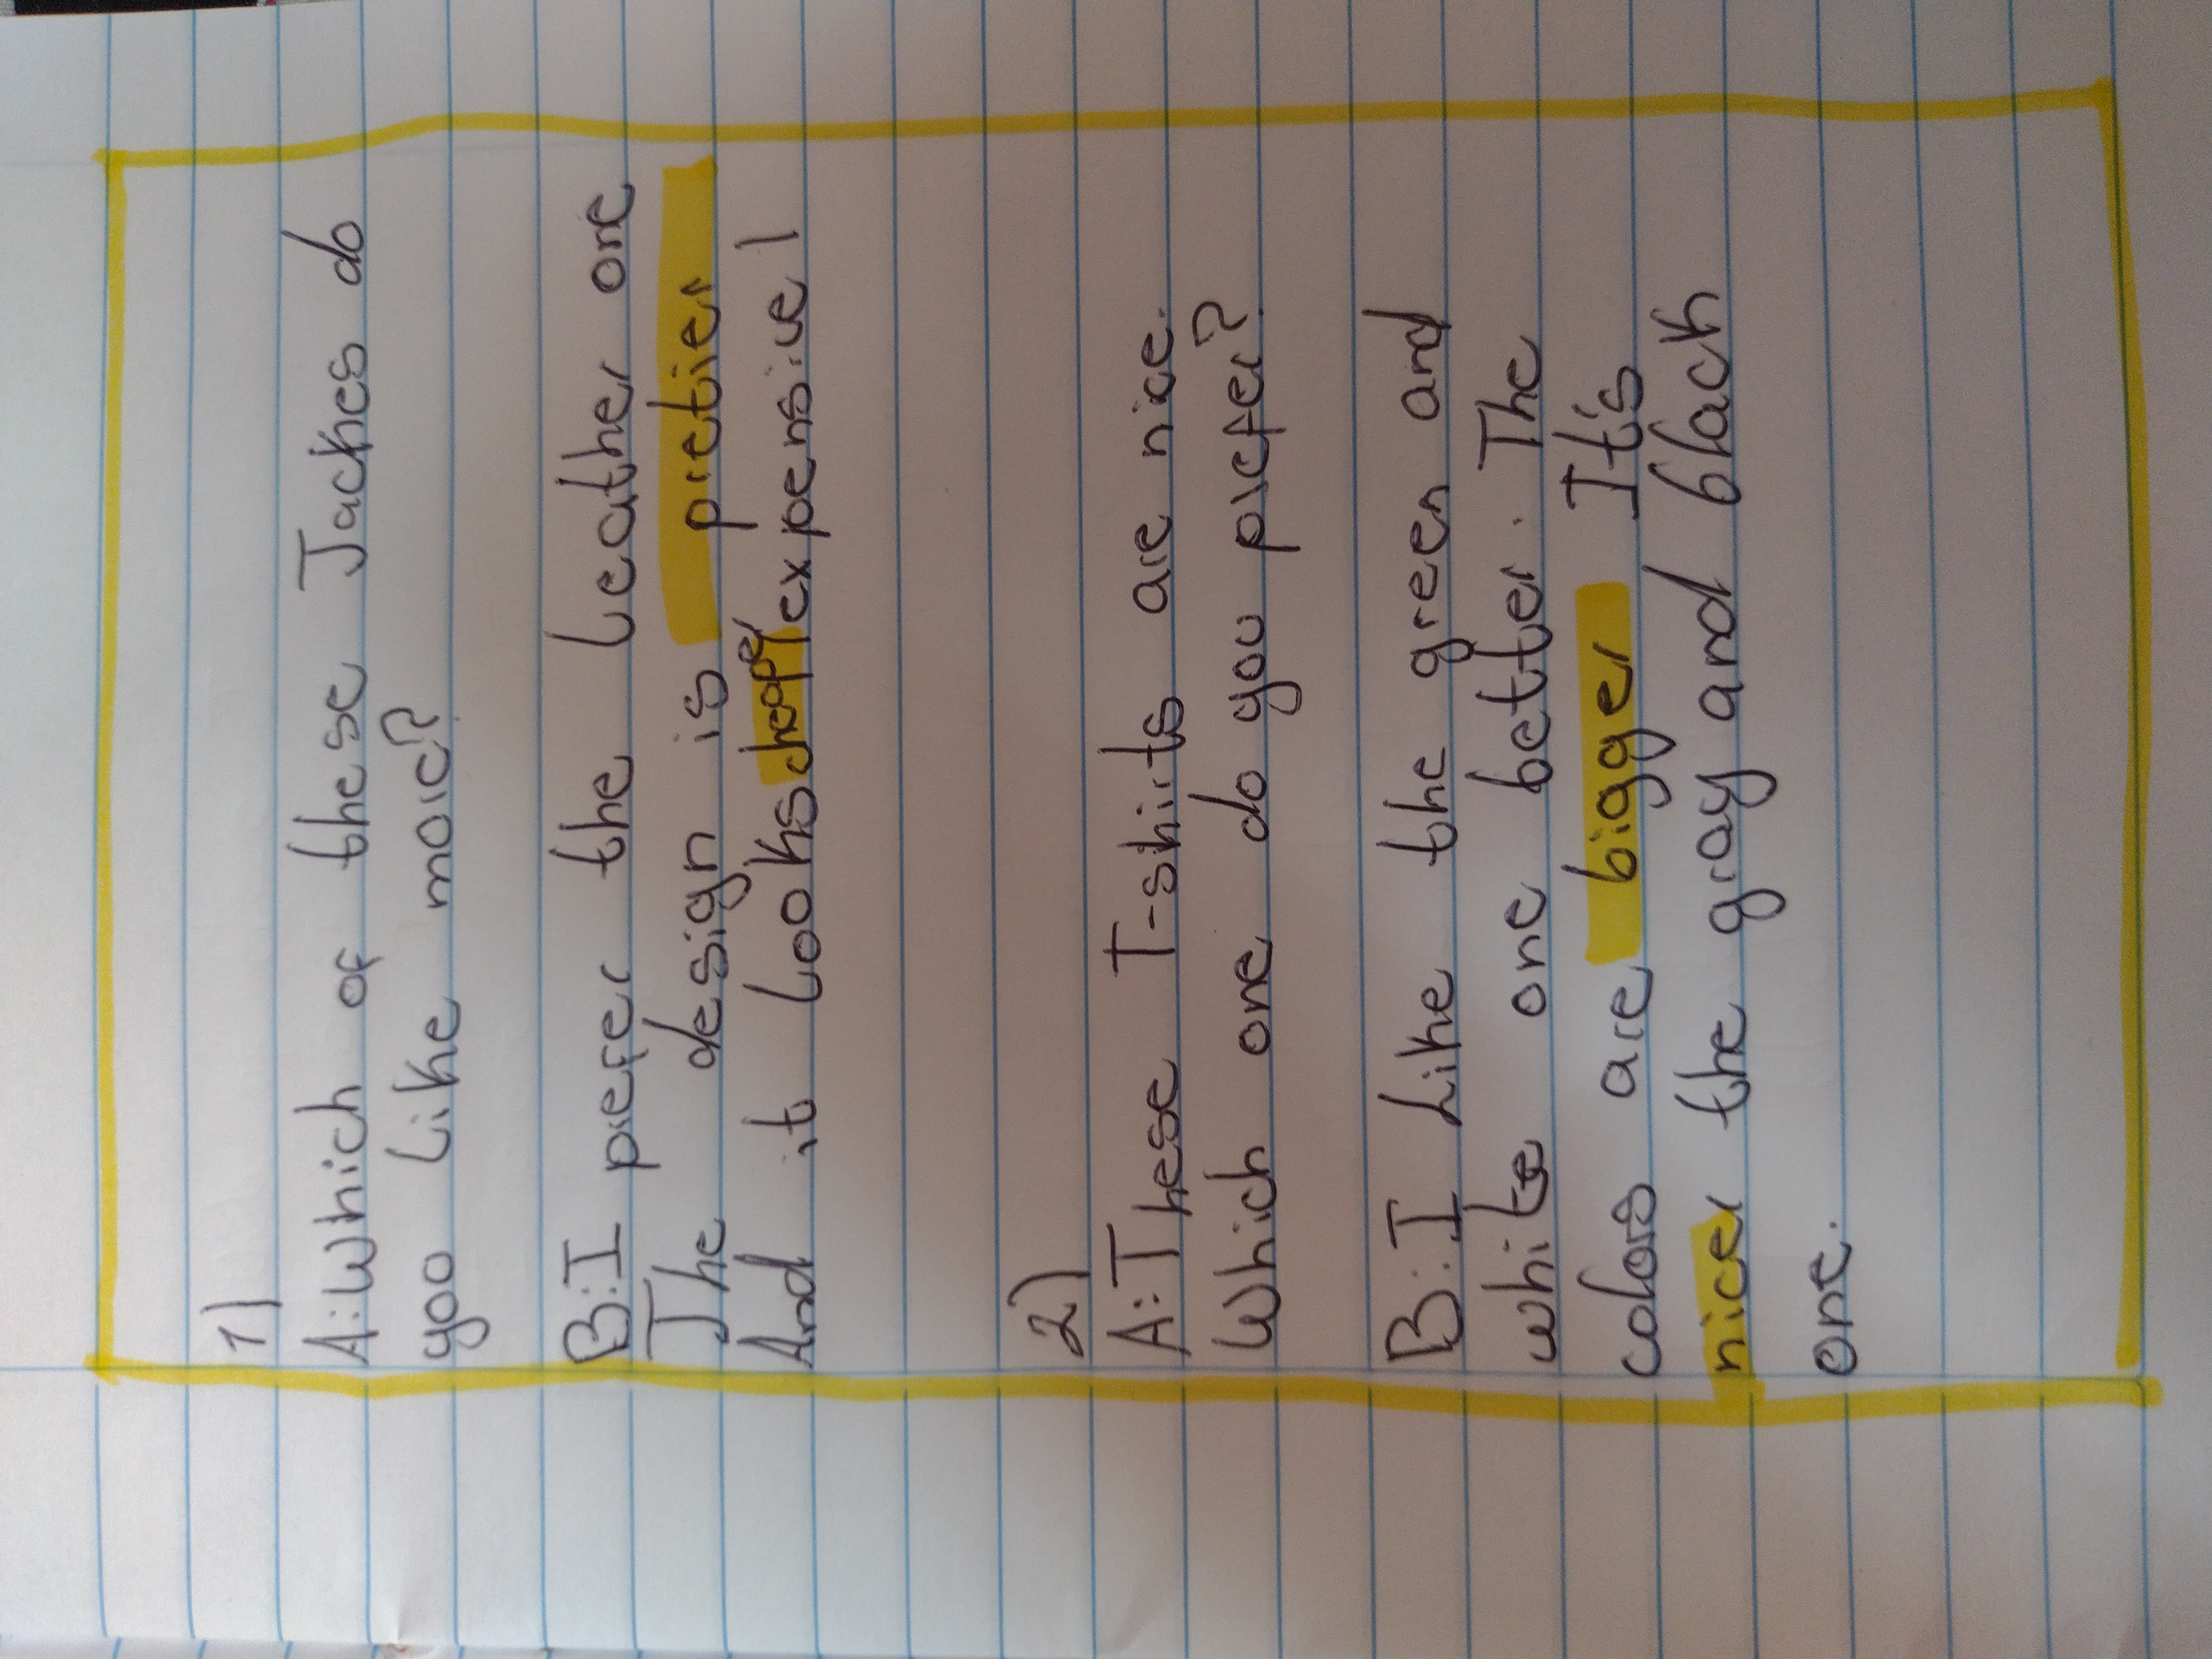 1)
A: Which of these Jackes do
you like more?
B: I prefer the Leather one
The design is pretier
And it Looks cheaper/expensive!
2)
A: These T-shirts are nice.
Which one do you prefer?
B: I Like the green and
white one better. The
colors are bigger It's
nicer the gray and black
one.